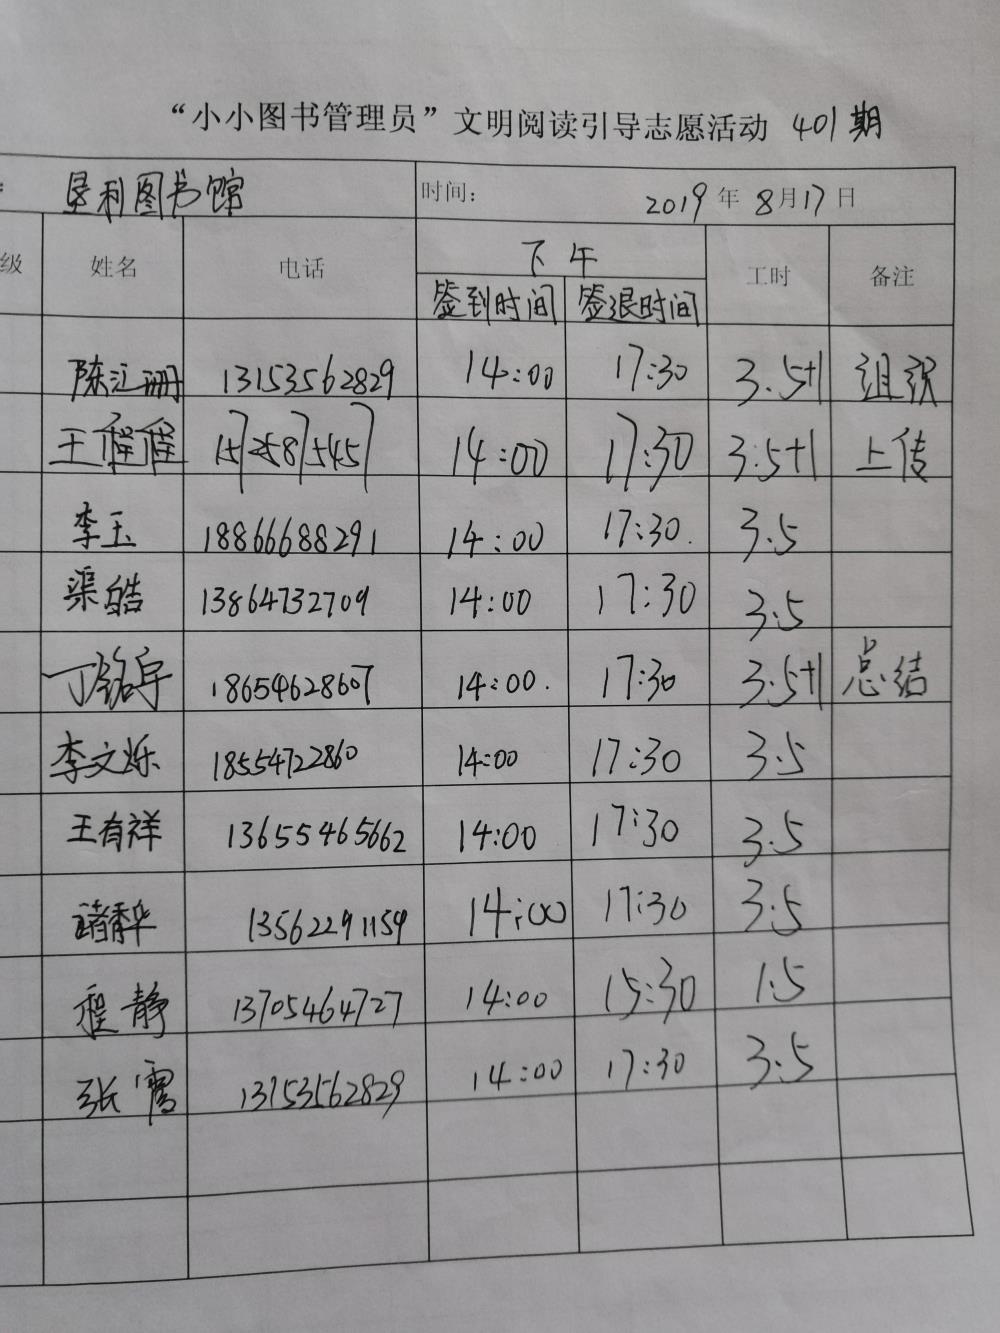 “小小图书管理员”文明阅读引导志愿活动 401期
: 垦利图书馆 时间: 2019年8月17日
级 姓名 电话 下午 工时 备注
签到时间 签退时间
陈汇珊 13153562829 14:00 17:30 3.5+1 组织
王程程 15725875457 14:00 17:30 3.5+1 上传
李玉 18866688291 14:00 17:30. 3.5
渠皓 13864732709 14:00 17:30 3.5
丁铭宇 18654628607 14:00. 17:30 3.5+1 总结
李文烁 18554722860 14:00 17:30 3.5
王有祥 13655465662 14:00 17:30 3.5
13562291159 14:00 17:30 3.5
程静 13705464727 14:00 15:30 1.5
张霄 13153562829 14:00 17:30 3.5